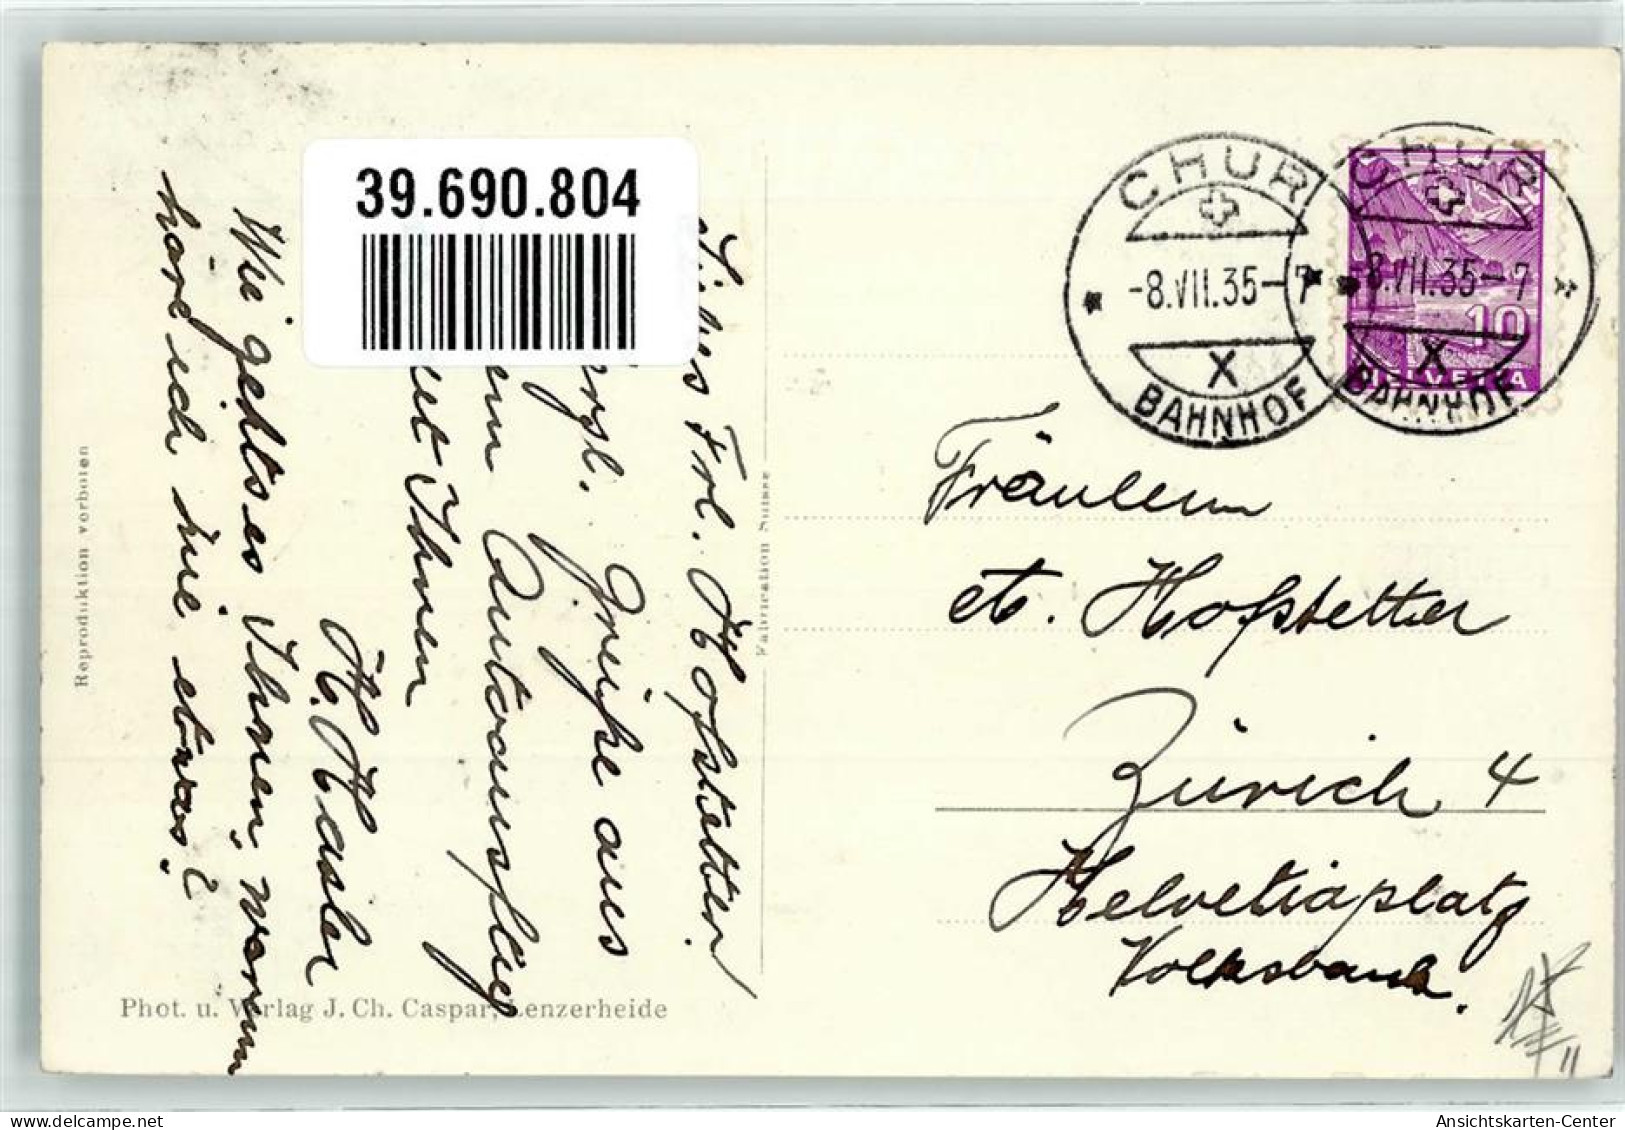 39.690.804
Liebes Frl. Hofstetter
Grüße aus
Autoausflug
Ihnen
H. Hasler
Wie geht es Ihnen, warum
höre ich nie etwas?
Reproduktion verboten
Phot. u. Verlag J. Ch. Caspar, Lenzerheide
Fabrication Suisse
CHUR
-8.VII.35-7
X
BAHNHOF
CHUR
-8.VII.35-7
X
BAHNHOF
10
HELVETIA
Fräulein
Hofstetter
Zürich 4
Helvetiaplatz
Volksbank.
11
Ansichtskarten-Center